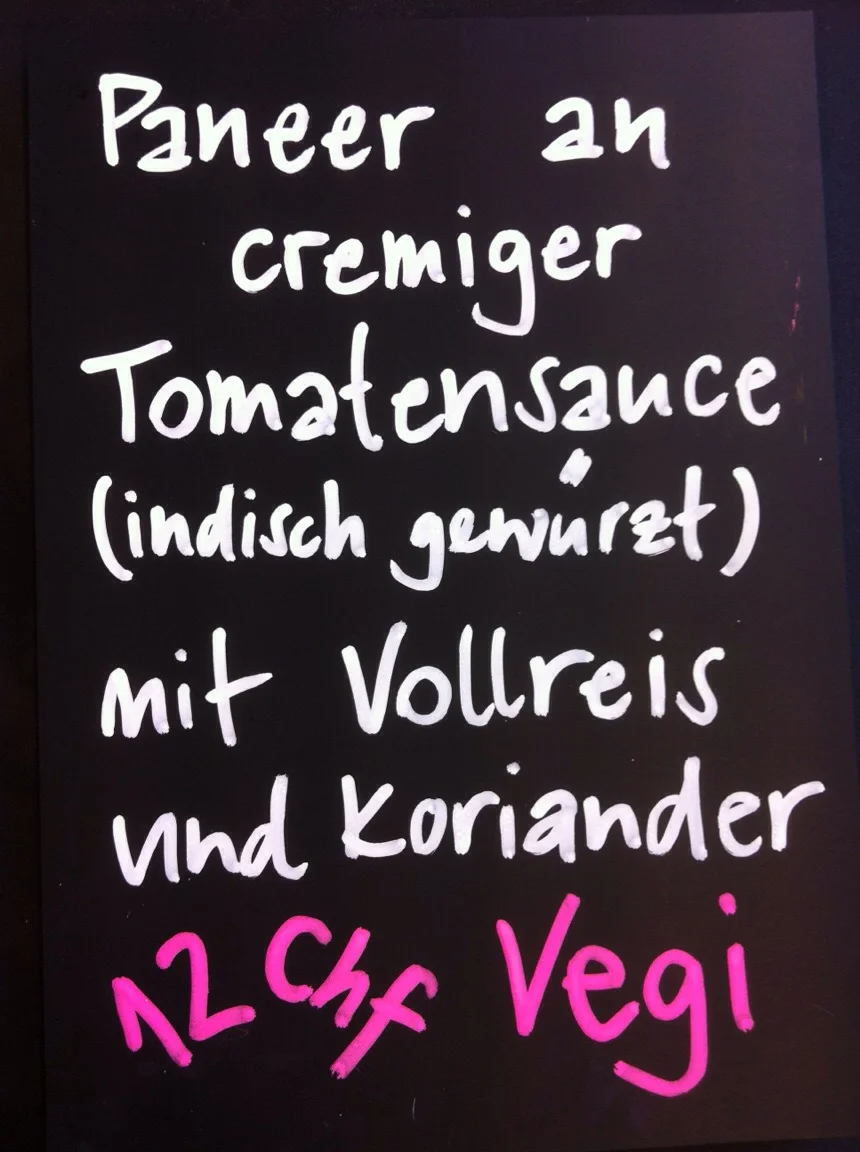 Paneer an
cremiger
Tomatensauce
(indisch gewürzt)
mit Vollreis
und Koriander
12 Chf Vegi